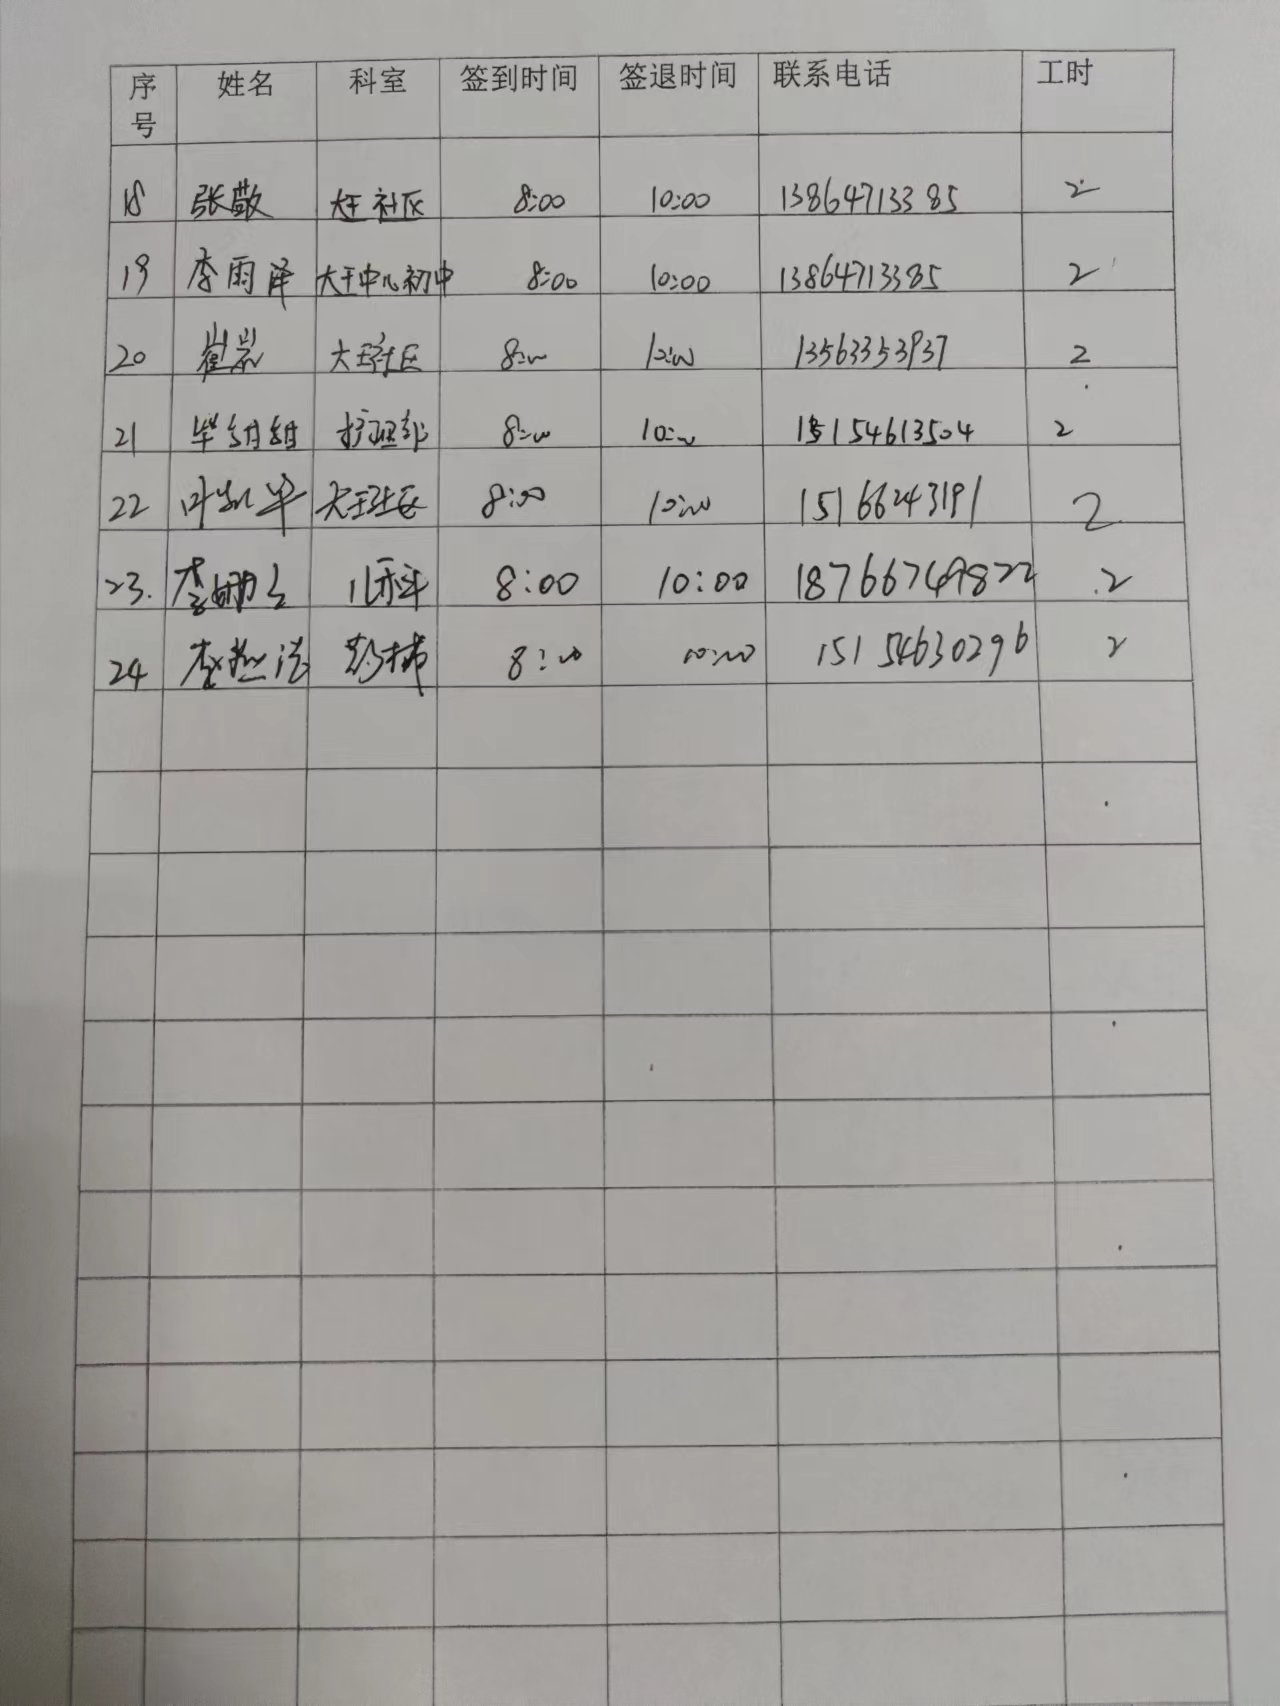 序号 姓名 科室 签到时间 签退时间 联系电话 工时
18 张敬 大王社区 8:00 10:00 13864713385 2
19 李雨泽 大王中心初中 8:00 10:00 13864713385 2
20 崔岩 大王社区 8:00 10:00 13563353937 2
21 毕娟娟 护理部 8:00 10:00 15154613504 2
22 叶凯华 大王社区 8:00 10:00 15166243191 2
23. 李 儿科 8:00 10:00 18766749822 2
24 李 药械 8:00 10:00 15154630296 2